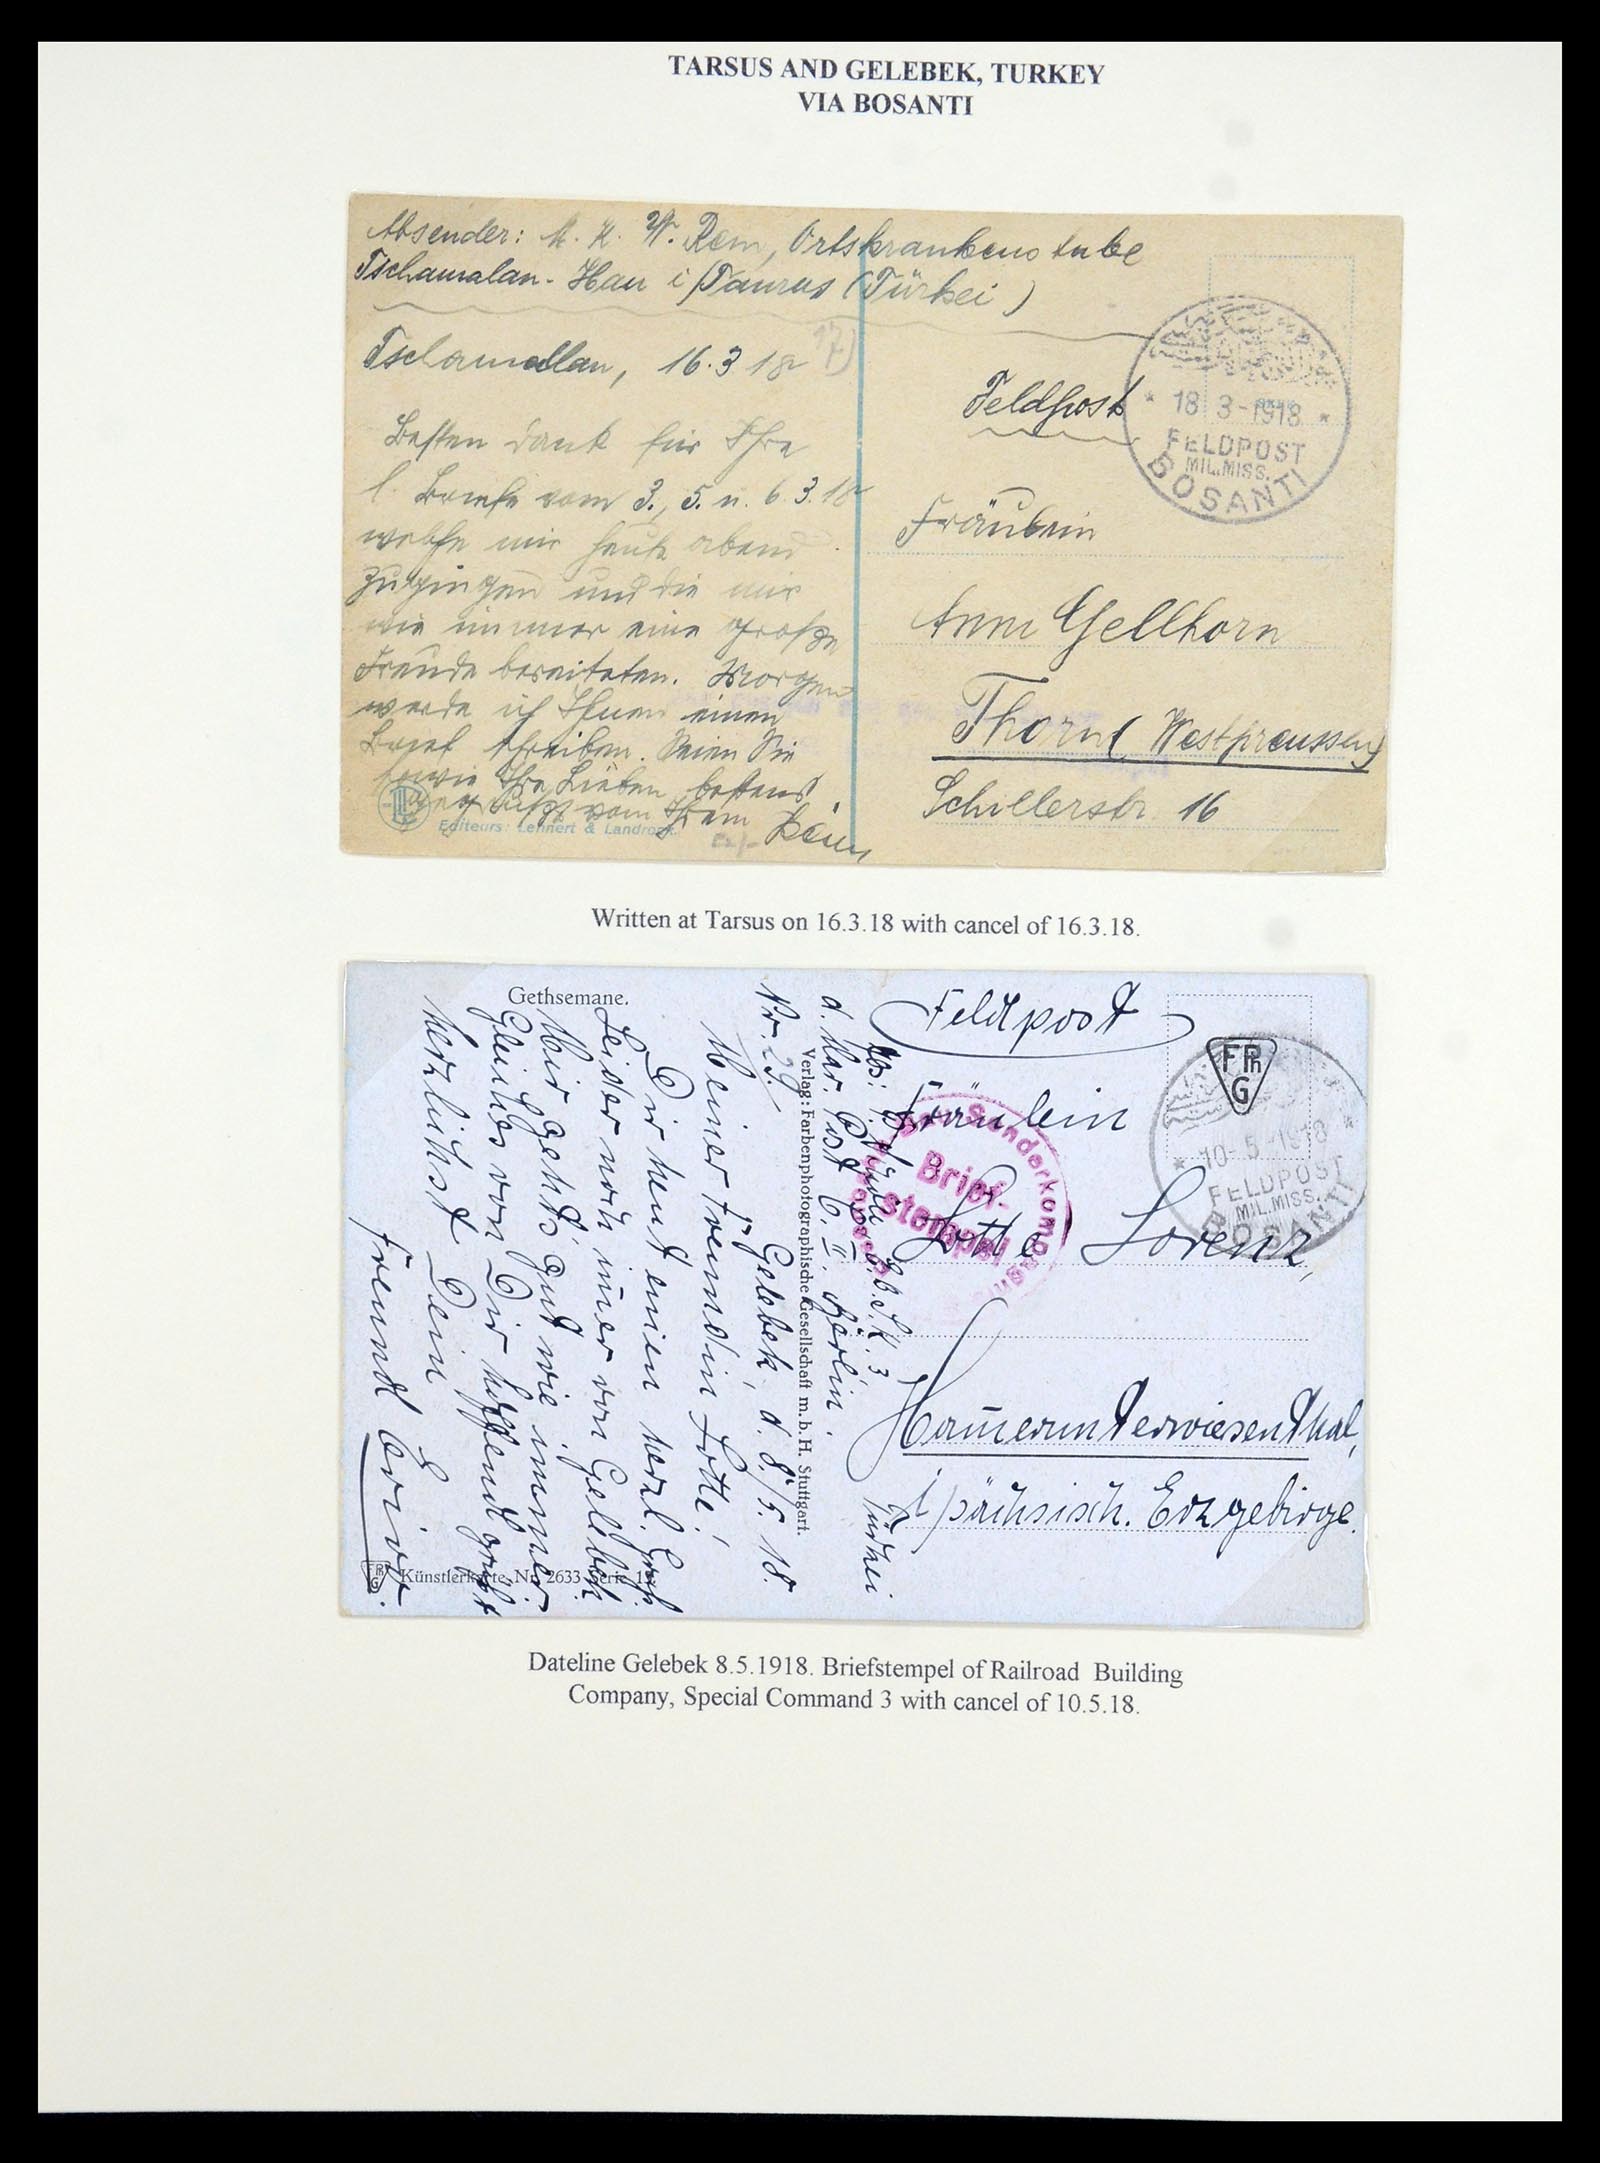 TARSUS AND GELEBEK, TURKEY
VIA BOSANTI
Absender: M. K. W. Rem, Ortskrankenstube
Tschamalan-Han i/Taurus (Türkei)
Tschamallan, 16.3 18
17)
Besten Dank für Ihre
l. Briefe vom 3., 5. u. 6.3.18
welche mir heute abend
zugingen und die mir
wie immer eine große
Freude bereiteten. Morgen
werde ich Ihnen einen
Brief schreiben. Seien Sie
sowie Ihre Lieben bestens
gegrüßt vom Ihrem Rem
Editeurs: Lehnert & Landrock
Feldpost
18 3-1918
FELDPOST
MIL.MISS.
BOSANTI
Fräulein
Anni Gellhorn
Thorn (Westpreussen)
Schillerstr. 16
Written at Tarsus on 16.3.18 with cancel of 16.3.18.
Gethsemane.
Nr. 29.
Gelebek, d. 8./5. 18.
Meiner Freundin Lotte!
Dir heut einen herzl. Gruß.
Leider noch imer von Gelebek.
Mir gehts gut wie immer
Gleiches von Dir hoffend grüßt
herzlichst Dein
Freund Erwin.
Künstlerkarte Nr. 2633 Serie
Verlag: Farbenphotographische Gesellschaft m.b.H. Stuttgart.
d. Mar. Post B. II. Berlin
E.B.S.K. 3
Türkei
Feldpost
FPhG
10-5-1918
FELDPOST
MIL.MISS.
BOSANTI
Sonderkomp
Brief-
stempel
Fräulein
Lotte Lorenz,
Hamerunterwiesenthal,
i/sächsisch. Erzgebirge.
Dateline Gelebek 8.5.1918. Briefstempel of Railroad Building
Company, Special Command 3 with cancel of 10.5.18.